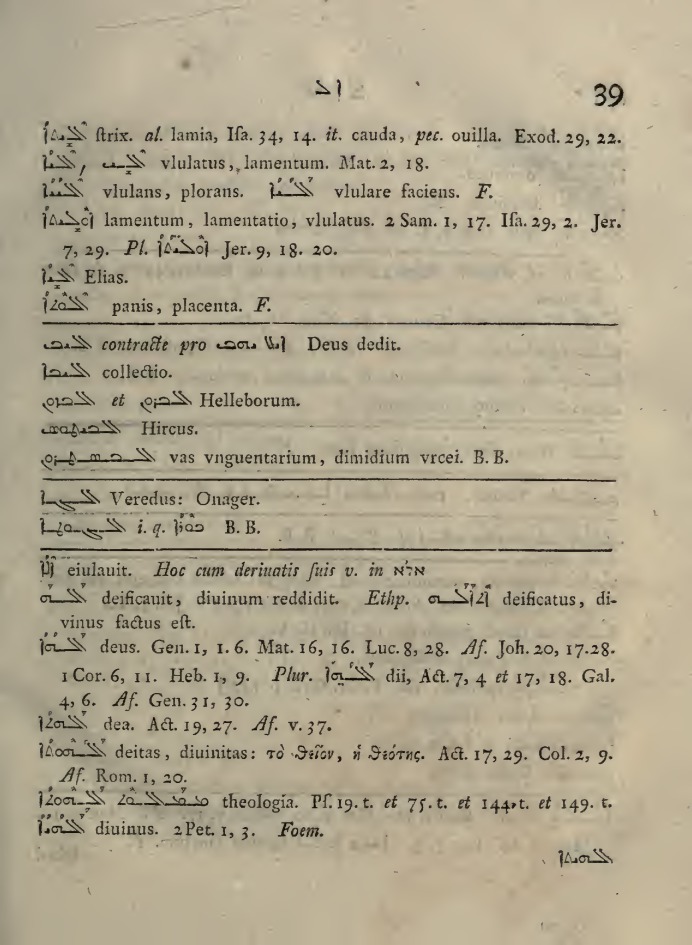 ܐܠ 39
ܐܠܝܬܐ ſtrix. al. lamia, Iſa. 34, 14. it. cauda, pec. ouilla. Exod. 29, 22.
ܐܠܝܐ, ܐܠܝ vlulatus, lamentum. Mat. 2, 18.
ܐܠܝܐ vlulans, plorans. vlulare faciens. F.
ܐܘܠܝܬܐ lamentum, lamentatio, vlulatus. 2 Sam. 1, 17. Iſa. 29, 2. Jer.
7, 29. Pl. ܐܘܠܝܬܐ Jer. 9, 18. 20.
ܐܠܝܐ Elias.
panis, placenta. F.
contracte pro Deus dedit.
collectio.
et Helleborum.
Hircus.
vas vnguentarium, dimidium vrcei. B. B.
Veredus: Onager.
i. q. B. B.
ܐܠܐ eiulauit. Hoc cum deriuatis ſuis v. in אלא
ܐܠܗ deificauit, diuinum reddidit. Ethp. ܐܬܐܠܗ deificatus, di-
vinus factus eſt.
ܐܠܗܐ deus. Gen. 1, 1. 6. Mat. 16, 16. Luc. 8, 28. Af. Joh. 20, 17.28.
1 Cor. 6, 11. Heb. 1, 9. Plur. ܐܠܗ̈ܐ dii, Act. 7, 4 et 17, 18. Gal.
4, 6. Af. Gen. 31, 30.
ܐܠܗܬܐ dea. Act. 19, 27. Af. v. 37.
ܐܠܗܘܬܐ deitas, diuinitas: τὸ θεῖον, ἡ θεότης. Act. 17, 29. Col. 2, 9.
Af. Rom. 1, 20.
ܡܡܠܠܘܬ ܐܠܗܘܬܐ theologia. Pſ. 19. t. et 75. t. et 144. t. et 149. t.
ܐܠܗܝܐ diuinus. 2 Pet. 1, 3. Foem.
ܐܠܗܝܬܐ